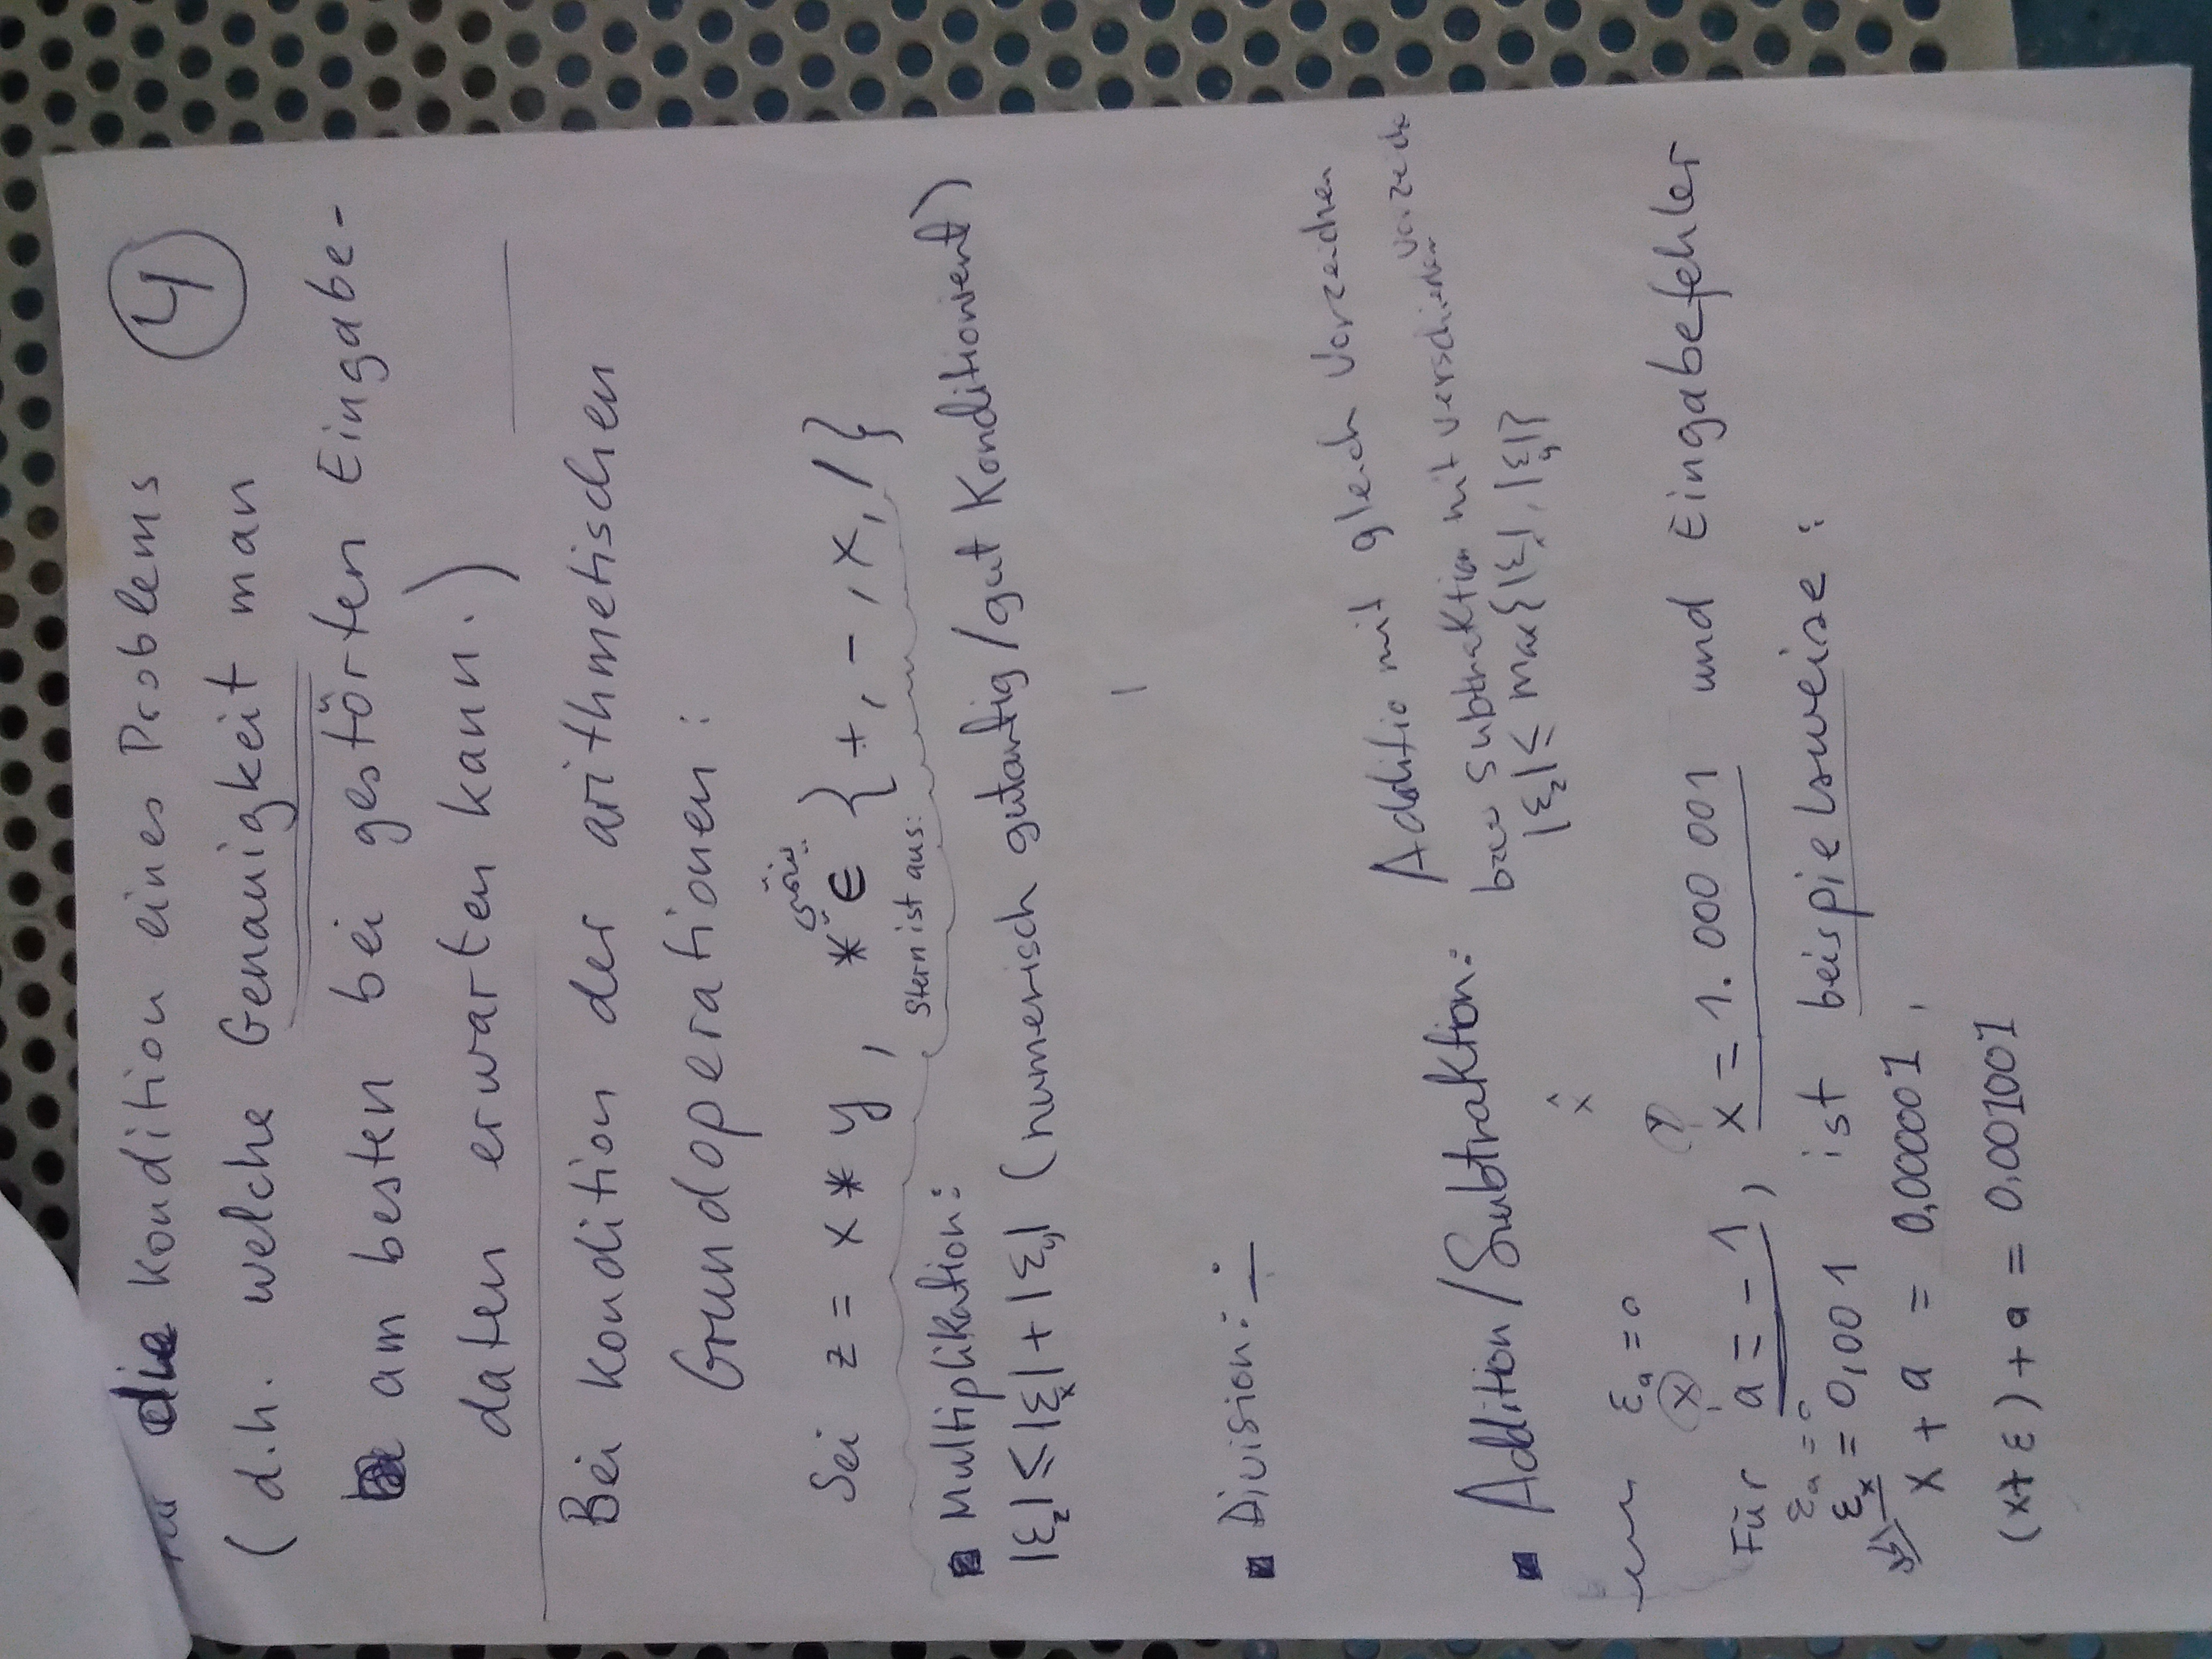 die Kondition eines Problems
4
(d.h. welche Genauigkeit man
am besten bei gestörten Eingabe-
daten erwarten kann.)
Bei Kondition der arithmetischen
Grundoperationen:
ينتمي
Sei z = x * y , * ∈ {+, -, x, /}
Stern ist aus:
Multiplikation:
|ε_z| ≤ |ε_x| + |ε_y| (numerisch gutartig/gut Konditioniert)
Division: ÷
Additio mit gleich Vorzeichen
Addition/Subtraktion:
bzw Subtraktion mit verschieden Vorzeiche
|ε_z| ≤ max{|ε_x|, |ε_y|}
x̂
ε_a = 0
x y
Für a = - 1, x = 1. 000 001 und Eingabefehler
ε_a = 0
ε_x = 0,001 ist beispielsweise :
x + a = 0,000001 ,
(x+ ε) + a = 0.001001